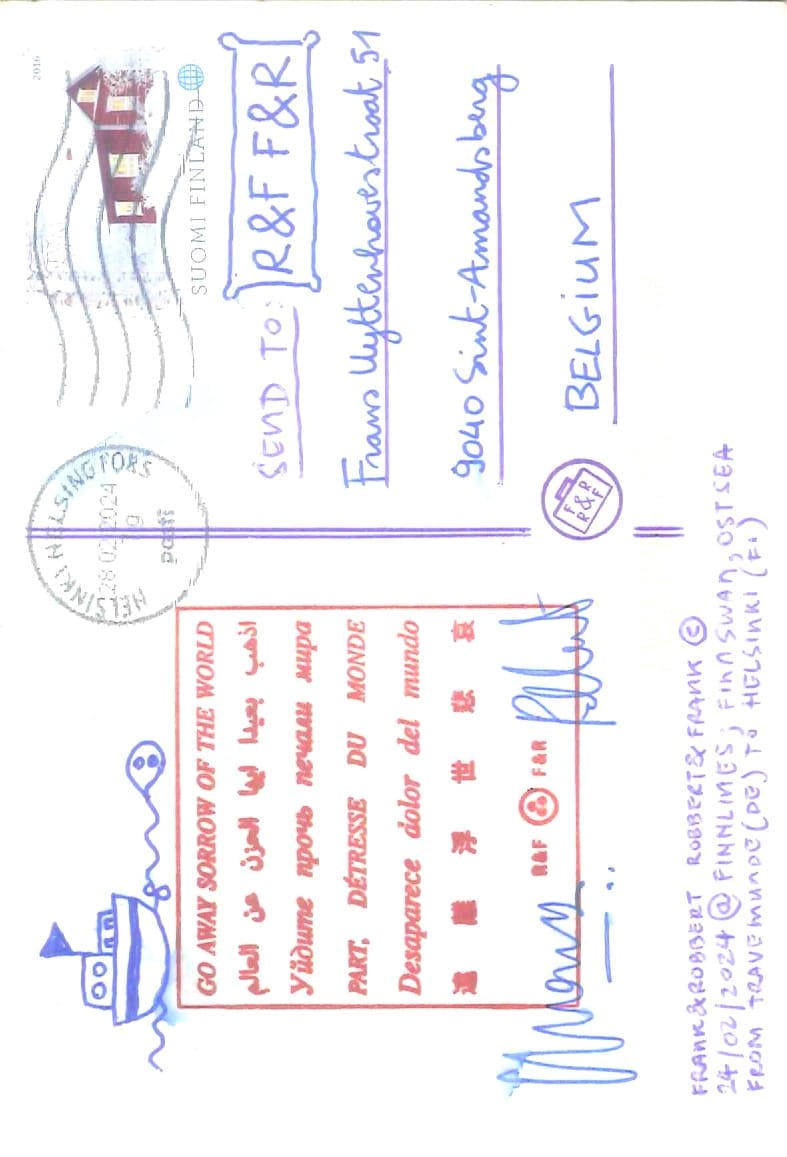 GO AWAY SORROW OF THE WORLD
اذهب بعيدا ايها الحزن عن العالم
Уйдите прочь печали мира
PART, DÉTRESSE DU MONDE
Desaparece dolor del mundo
遠離浮世悲哀
R&F F&R
HELSINKI HELSINGFORS
28 02 2024
posti
2016
SUOMI FINLAND
SEND TO:
R&F F&R
Frans Uyttenhovestraat 51
9040 Sint-Amandsberg
BELGIUM
F&R
R&F
FRANK&ROBBERT ROBBERT&FRANK ©
24/02/2024 @ FINNLINES; FINNSWAN, OSTSEA
FROM TRAVEMUNDE (DE) TO HELSINKI (FI)